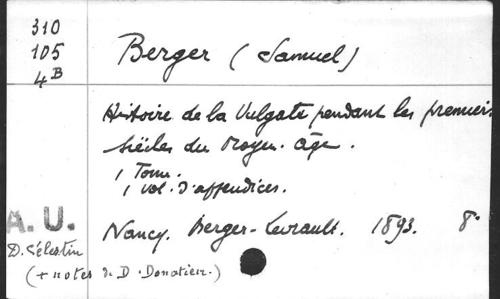 310
105
4B
Berger (Samuel)
Histoire de la Vulgate pendant les premiers
siècles du Moyen-âge.
1 Tome.
1 vol. d'appendices.
A. U.
Nancy. Berger-Levrault. 1893. 8°
D. Célestin
(+ notes de D. Donatien.)